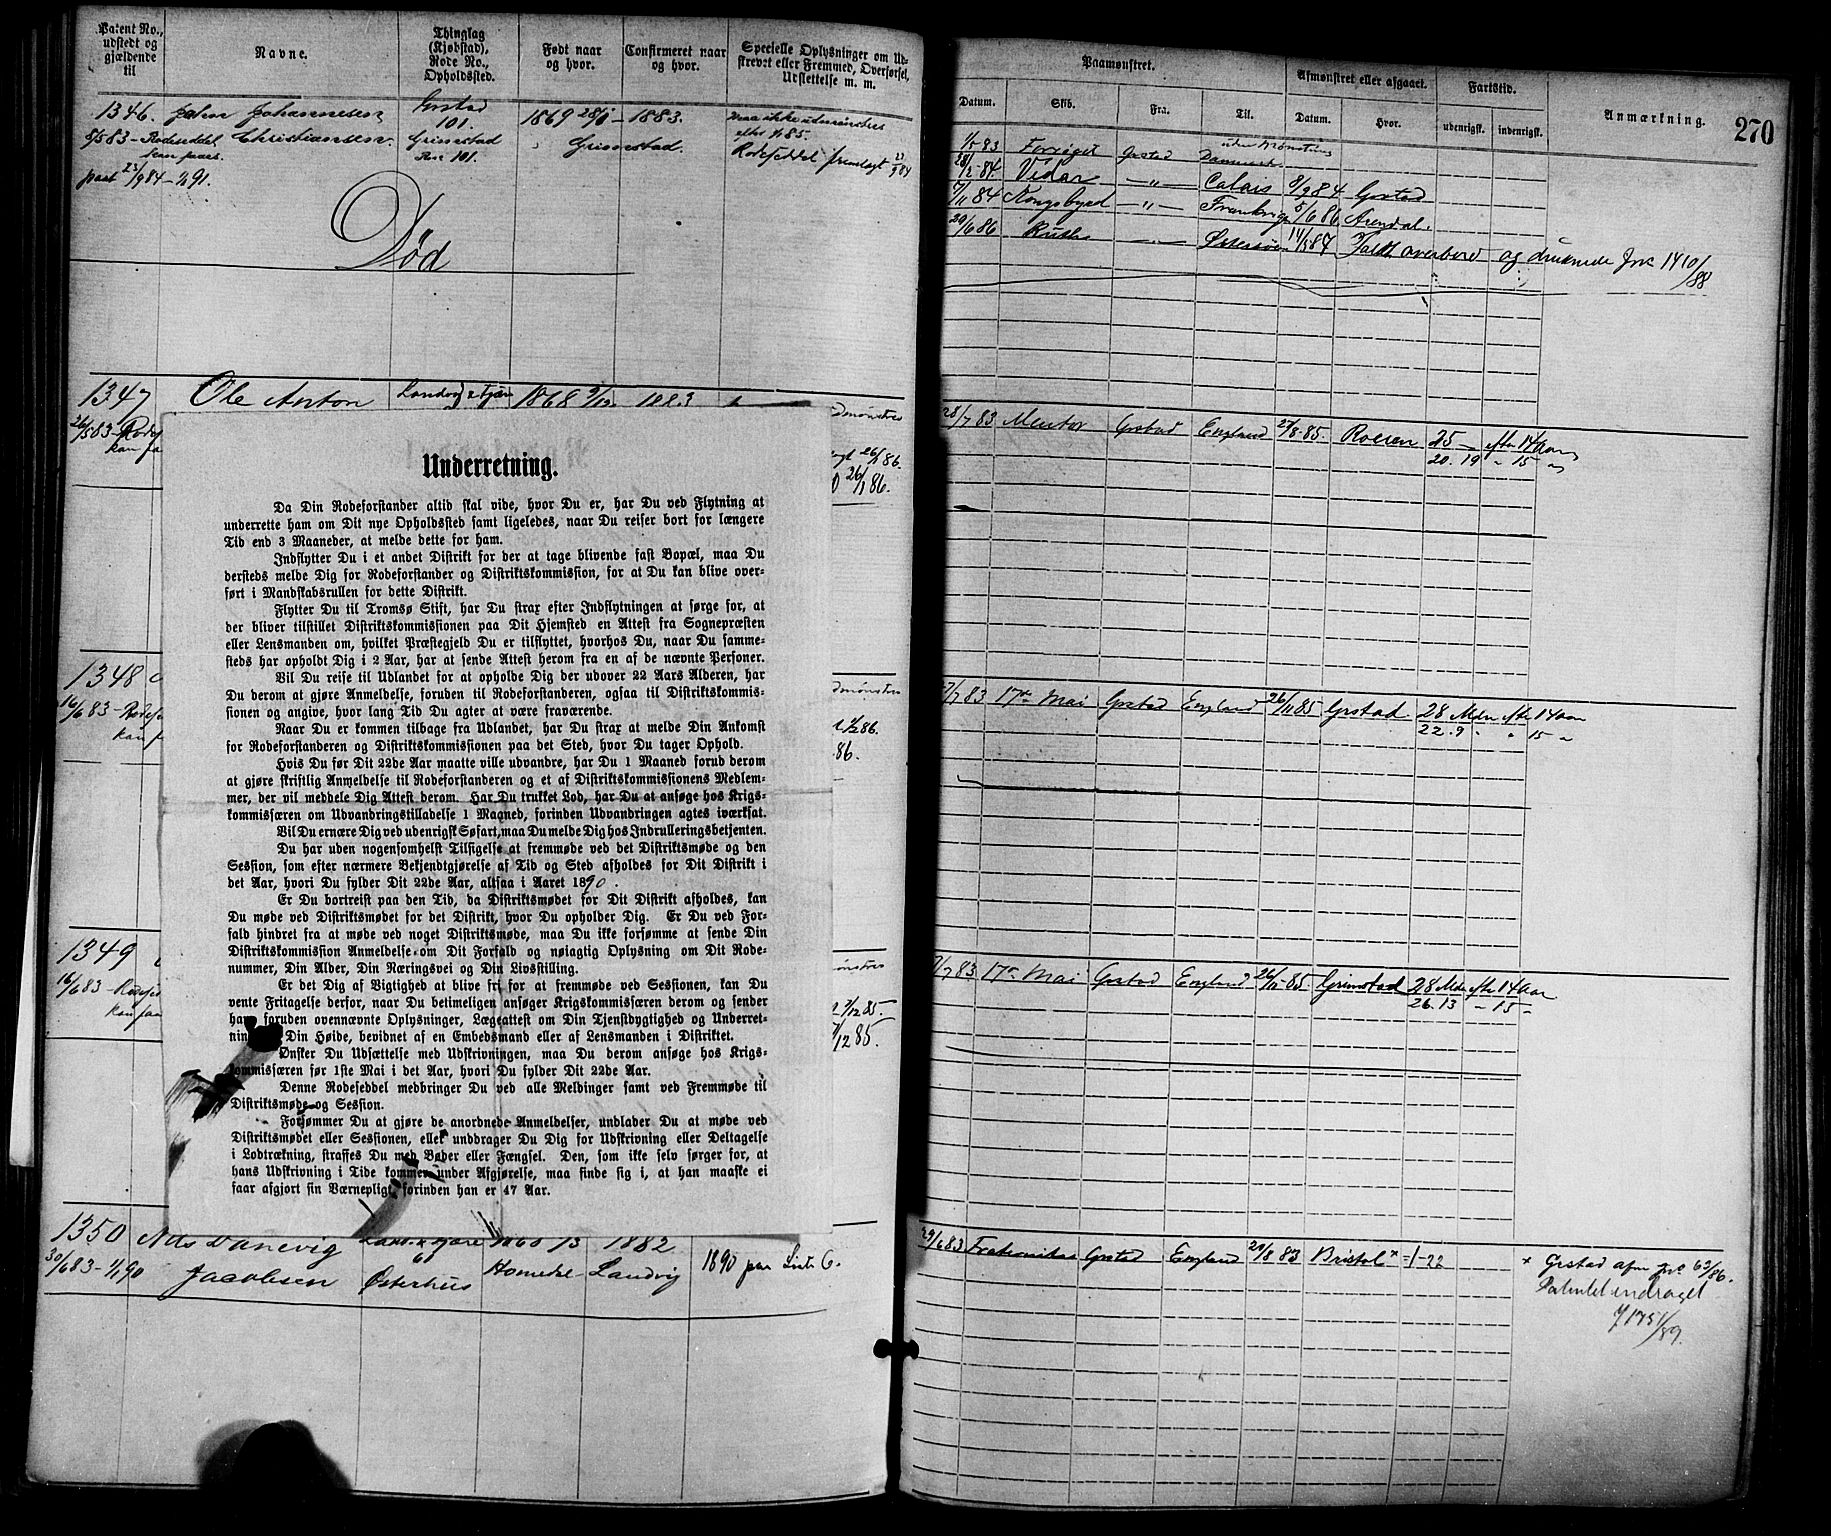 Patent No.,
udstedt og
gjældende
til
Navne.
Thinglag
(Kjøbstad),
Rode No.,
Opholdssted.
Født naar
og hvor.
Confirmeret naar
og hvor.
Specielle Oplysninger om Ud-
skrevet eller Fremmed, Overførsel,
Udslettelse m. m.
1346. John Johannesen Grstad 1869 28/1 – 1883. maa ikke udmønstres
101. efter 1/85.
8/5 83 – Rodeseddel Christiansen. Grimstad Grimstad. Rodeseddel fremlagt 23/9 84
101.
paat 23/9 84 – 1/1 91.
Død
1347 Ole Anton Landvig & Fjære 1868 9/12 1883
26/5 83 – Rodes
kan
1348
16/6 83 – Rodese
kan
1349
16/6 83 – Rodese
kan
dmønstres
26/1 86.
26/1 86.
dmønstres
1/2 86.
86.
mønstres
2/12 85.
/12 85.
Underretning.
Da Din Rodeforstander altid skal vide, hvor Du er, har Du ved Flytning at
underrette ham om Dit nye Opholdssted samt ligeledes, naar Du reiser bort for længere
Tid end 3 Maaneder, at melde dette for ham.
Indflytter Du i et andet Distrikt for der at tage blivende fast Bopæl, maa Du
dersteds melde Dig for Rodeforstander og Distriktskommission, for at Du kan blive over-
ført i Mandskabsrullen for dette Distrikt.
Flytter Du til Tromsø Stift, har Du strax efter Indflytningen at sørge for, at
der bliver tilstillet Distriktskommissionen paa Dit Hjemsted en Attest fra Sognepræsten
eller Lensmanden om, hvilket Præstegjeld Du er tilflyttet, hvorhos Du, naar Du samme-
steds har opholdt Dig i 2 Aar, har at sende Attest herom fra en af de nævnte Personer.
Vil Du reise til Udlandet for at opholde Dig der udover 22 Aars Alderen, har
Du derom at gjøre Anmeldelse, foruden til Rodeforstanderen, ogsaa til Distriktskommis-
sionen og angive, hvor lang Tid Du agter at være fraværende.
Naar Du er kommen tilbage fra Udlandet, har Du strax at melde Din Ankomst
for Rodeforstanderen og Distriktskommissionen paa det Sted, hvor Du tager Ophold.
Hvis Du før Dit 22de Aar maatte ville udvandre, har Du 1 Maaned forud derom
at gjøre skriftlig Anmeldelse til Rodeforstanderen og et af Distriktskommissionens Medlem-
mer, der vil meddele Dig Attest derom. Har Du trukket Lod, har Du at ansøge hos Krigs-
kommissæren om Udvandringstilladelse 1 Maaned, forinden Udvandringen agtes iværksat.
Vil Du ernære Dig ved udenrigsk Søfart, maa Du melde Dig hos Indrulleringsbetjenten.
Du har uden nogensomhelst Tilsigelse at fremmøde ved det Distriktsmøde og den
Session, som efter nærmere Bekjendtgjørelse af Tid og Sted afholdes for Dit Distrikt i
det Aar, hvori Du fylder Dit 22de Aar, altsaa i Aaret 1890.
Er Du bortreist paa den Tid, da Distriktsmødet for Dit Distrikt afholdes, kan
Du møde ved Distriktsmødet for det Distrikt, hvor Du opholder Dig. Er Du ved For-
fald hindret fra at møde ved noget Distriktsmøde, maa Du ikke forsømme at sende Din
Distriktskommission Anmeldelse om Dit Forfald og nøiagtig Oplysning om Dit Rode-
nummer, Din Alder, Din Næringsvei og Din Livsstilling.
Er det Dig af Vigtighed at blive fri for at fremmøde ved Sessionen, kan Du
vente Fritagelse derfor, naar Du betimeligen ansøger Krigskommissæren derom og sender
ham foruden ovennævnte Oplysninger, Lægeattest om Din Tjenstdygtighed og Underret-
ning Din Høide, bevidnet af en Embedsmand eller af Lensmanden i Distriktet.
Ønsker Du Udsættelse med Udskrivningen, maa Du derom ansøge hos Krigs-
kommissæren før 1ste Mai i det Aar, hvori Du fylder Dit 22de Aar.
Denne Rodeseddel medbringer Du ved alle Meldinger samt ved Fremmøde til
Distriktsmøde og Session.
Forsømmer Du at gjøre de anordnede Anmeldelser, undlader Du at møde ved
Distriktsmødet eller Sessionen, eller unddrager Du Dig for Udskrivning eller Deltagelse
i Lodtrækning, straffes Du med Bøder eller Fængsel. Den, som ikke selv sørger for, at
hans Udskrivning i Tide kommer under Afgjørelse, maa finde sig i, at han maaske ei
faar afgjort sin Værnepligt, forinden han er 47 Aar.
1350 Nils Danevig 1882
30/6 83 – 1/1 90 Jacobsen Østerhus Homedal Landvig 1890 paa Liste C.
Paamønstret.
Afmønstret eller afgaaet.
Fartstid.
Anmærkning.
270
Datum. Skib. Fra. Til. Datum. Hvor. udenrigsk. indenrigsk.
uden Mønstring
1/5 83 Forsøget Grstad Danmark
28/2 84 Vidar – " – Calais 8/9 84 Grstad
7/11 84 Kongsbyrd – " – Frankrige 5/6 86 Arendal.
20/6 86 Ruth – " – Østersøen 14/5 87 Faldt overbord og druknede Jnr 1410/88
28/7 83 Mentor Grstad England 27/8 85. Rouen 25 – efter 14 Aar
20. 19 " 15 "
7/7 83 17de Mai Grstad England 26/11 85 Grstad 28 Mdr efter 14 Aar
22. 9 " " 15 "
7/7 83 17de Mai Grstad England 26/11 85 Grimstad 28 Mdr efter 14 Aar
26. 13 – 15 –
29/6 83 Fraternitas Grstad England 20/8 83 Bristol x = 1 – 22
x Grstad afm Jnr 63/86.
Patentet inddraget
J 175 1/89.